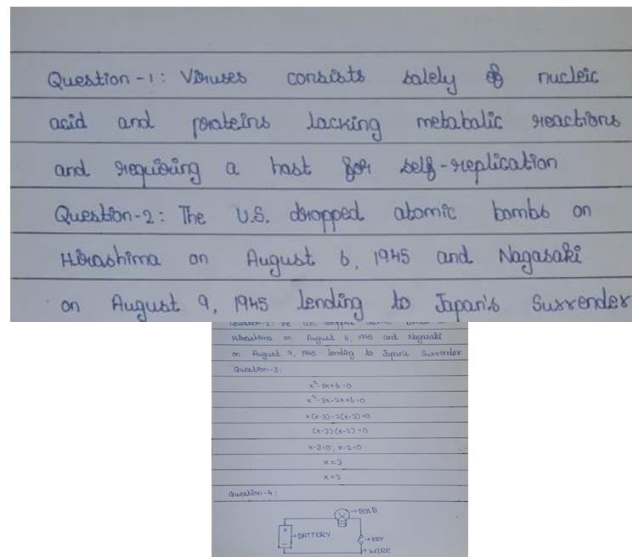 Question-1: Viruses consists solely of nucleic
acid and proteins lacking metabolic reactions
and requiring a host for self-replication
Question-2: The U.S. dropped atomic bombs on
Hiroshima on August 6, 1945 and Nagasaki
on August 9, 1945 lending to Japan's Surrender
Question-2: The U.S. dropped atomic bombs on
Hiroshima on August 6, 1945 and Nagasaki
on August 9, 1945 lending to Japan's Surrender
Question-3:
x²-5x+6=0
x²-3x-2x+6=0
x(x-3)-2(x-3)=0
(x-3)(x-2)=0
x-3=0, x-2=0
x=3
x=2
Question-4:
→BULB
→BATTERY
→KEY
→WIRE